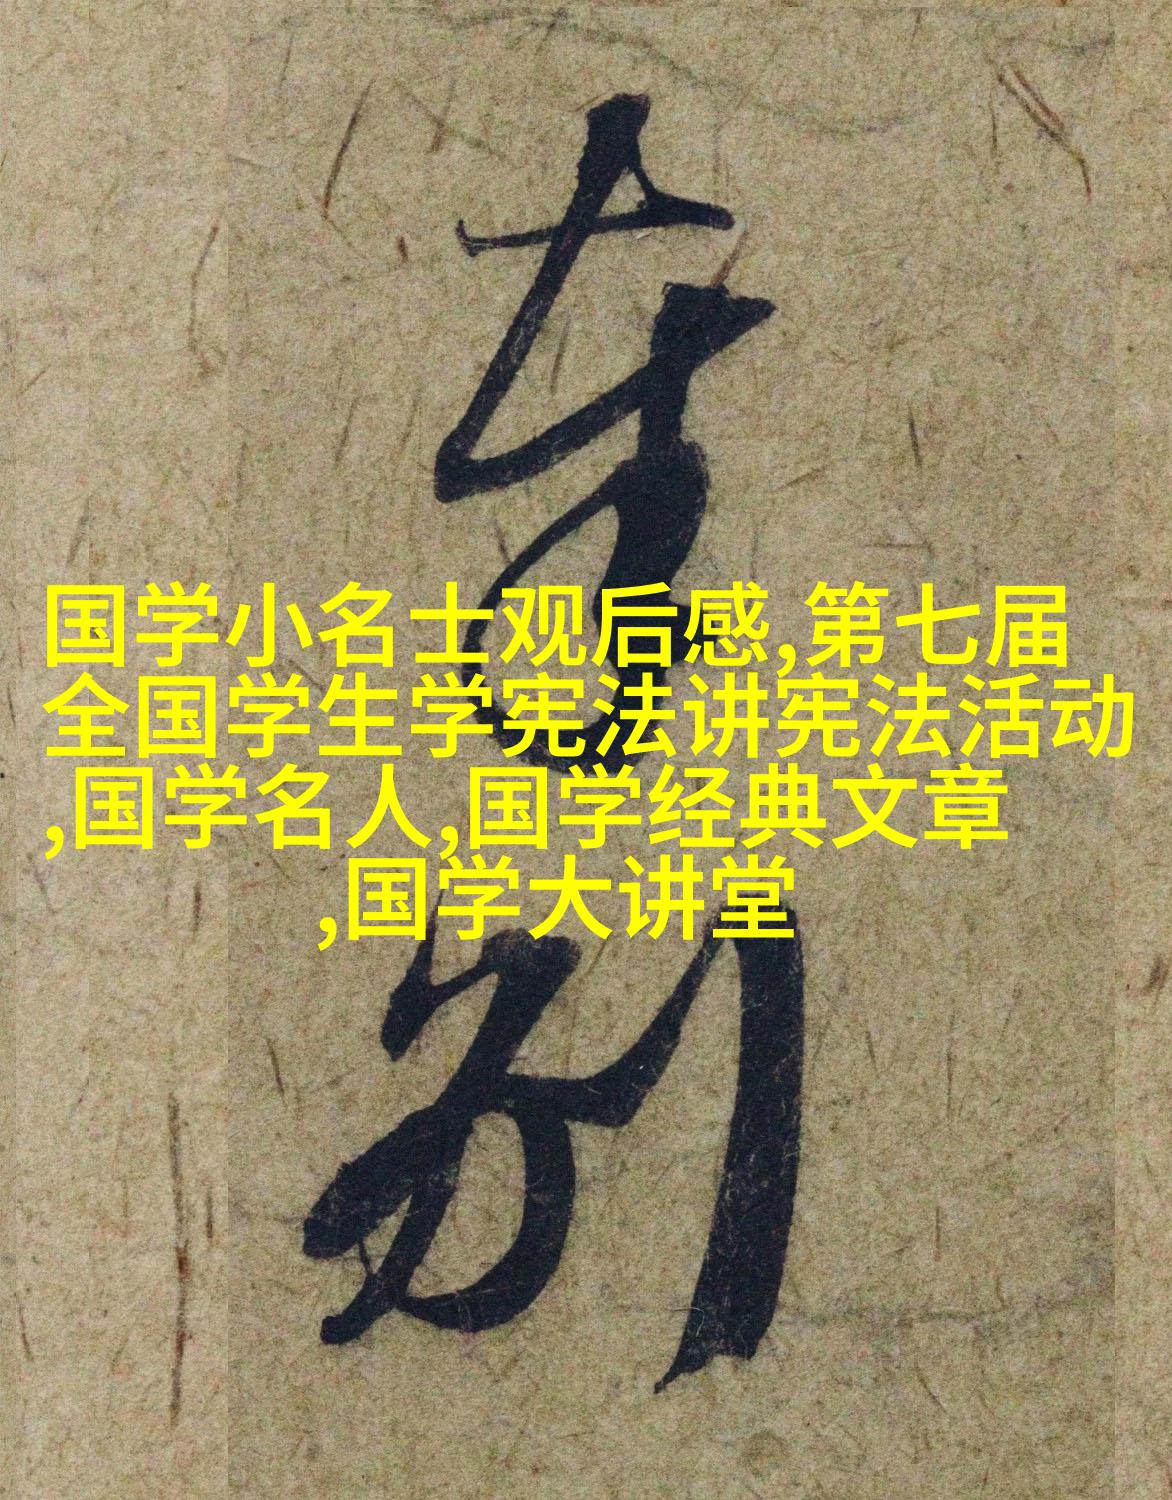 国学小名士观后感,第七届
全国学生学宪法讲宪法活动
,国学名人,国学经典文章
,国学大讲堂